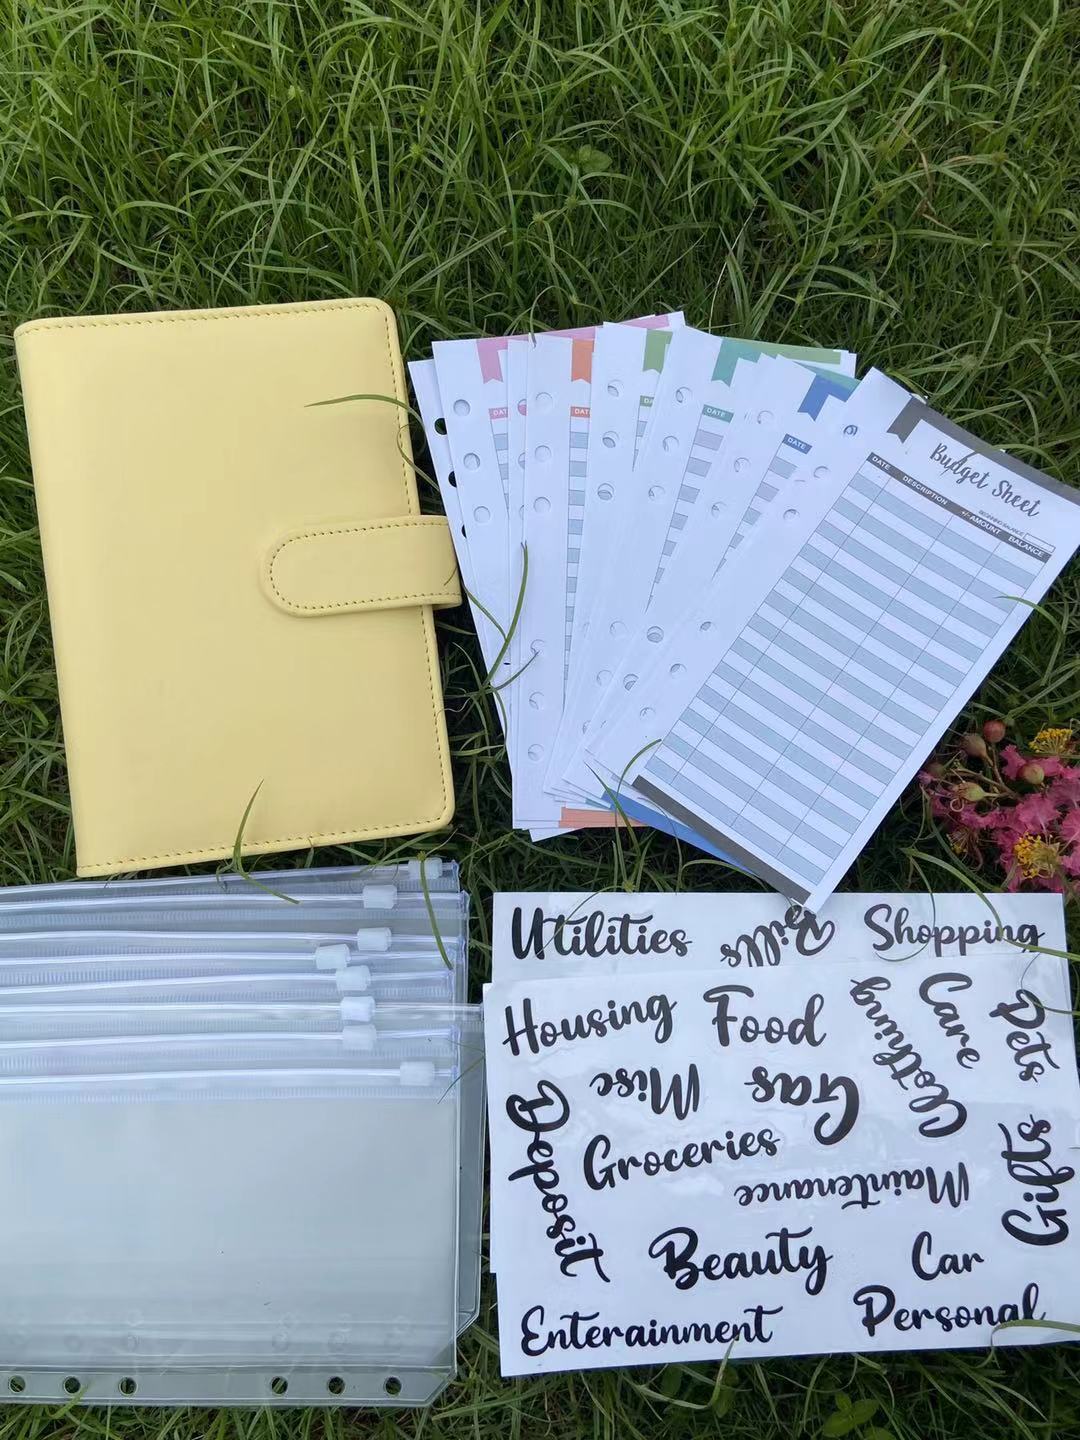 DATE
DATE
DATE
DATE
Budget Sheet
BEGINNING BALANCE
DATE DESCRIPTION +/- AMOUNT BALANCE
Utilities Bills Shopping
Housing Food Clothing Care Pets
Misc Gas
Deposit Groceries Gifts
Maintenance
Beauty Car
Enterainment Personal